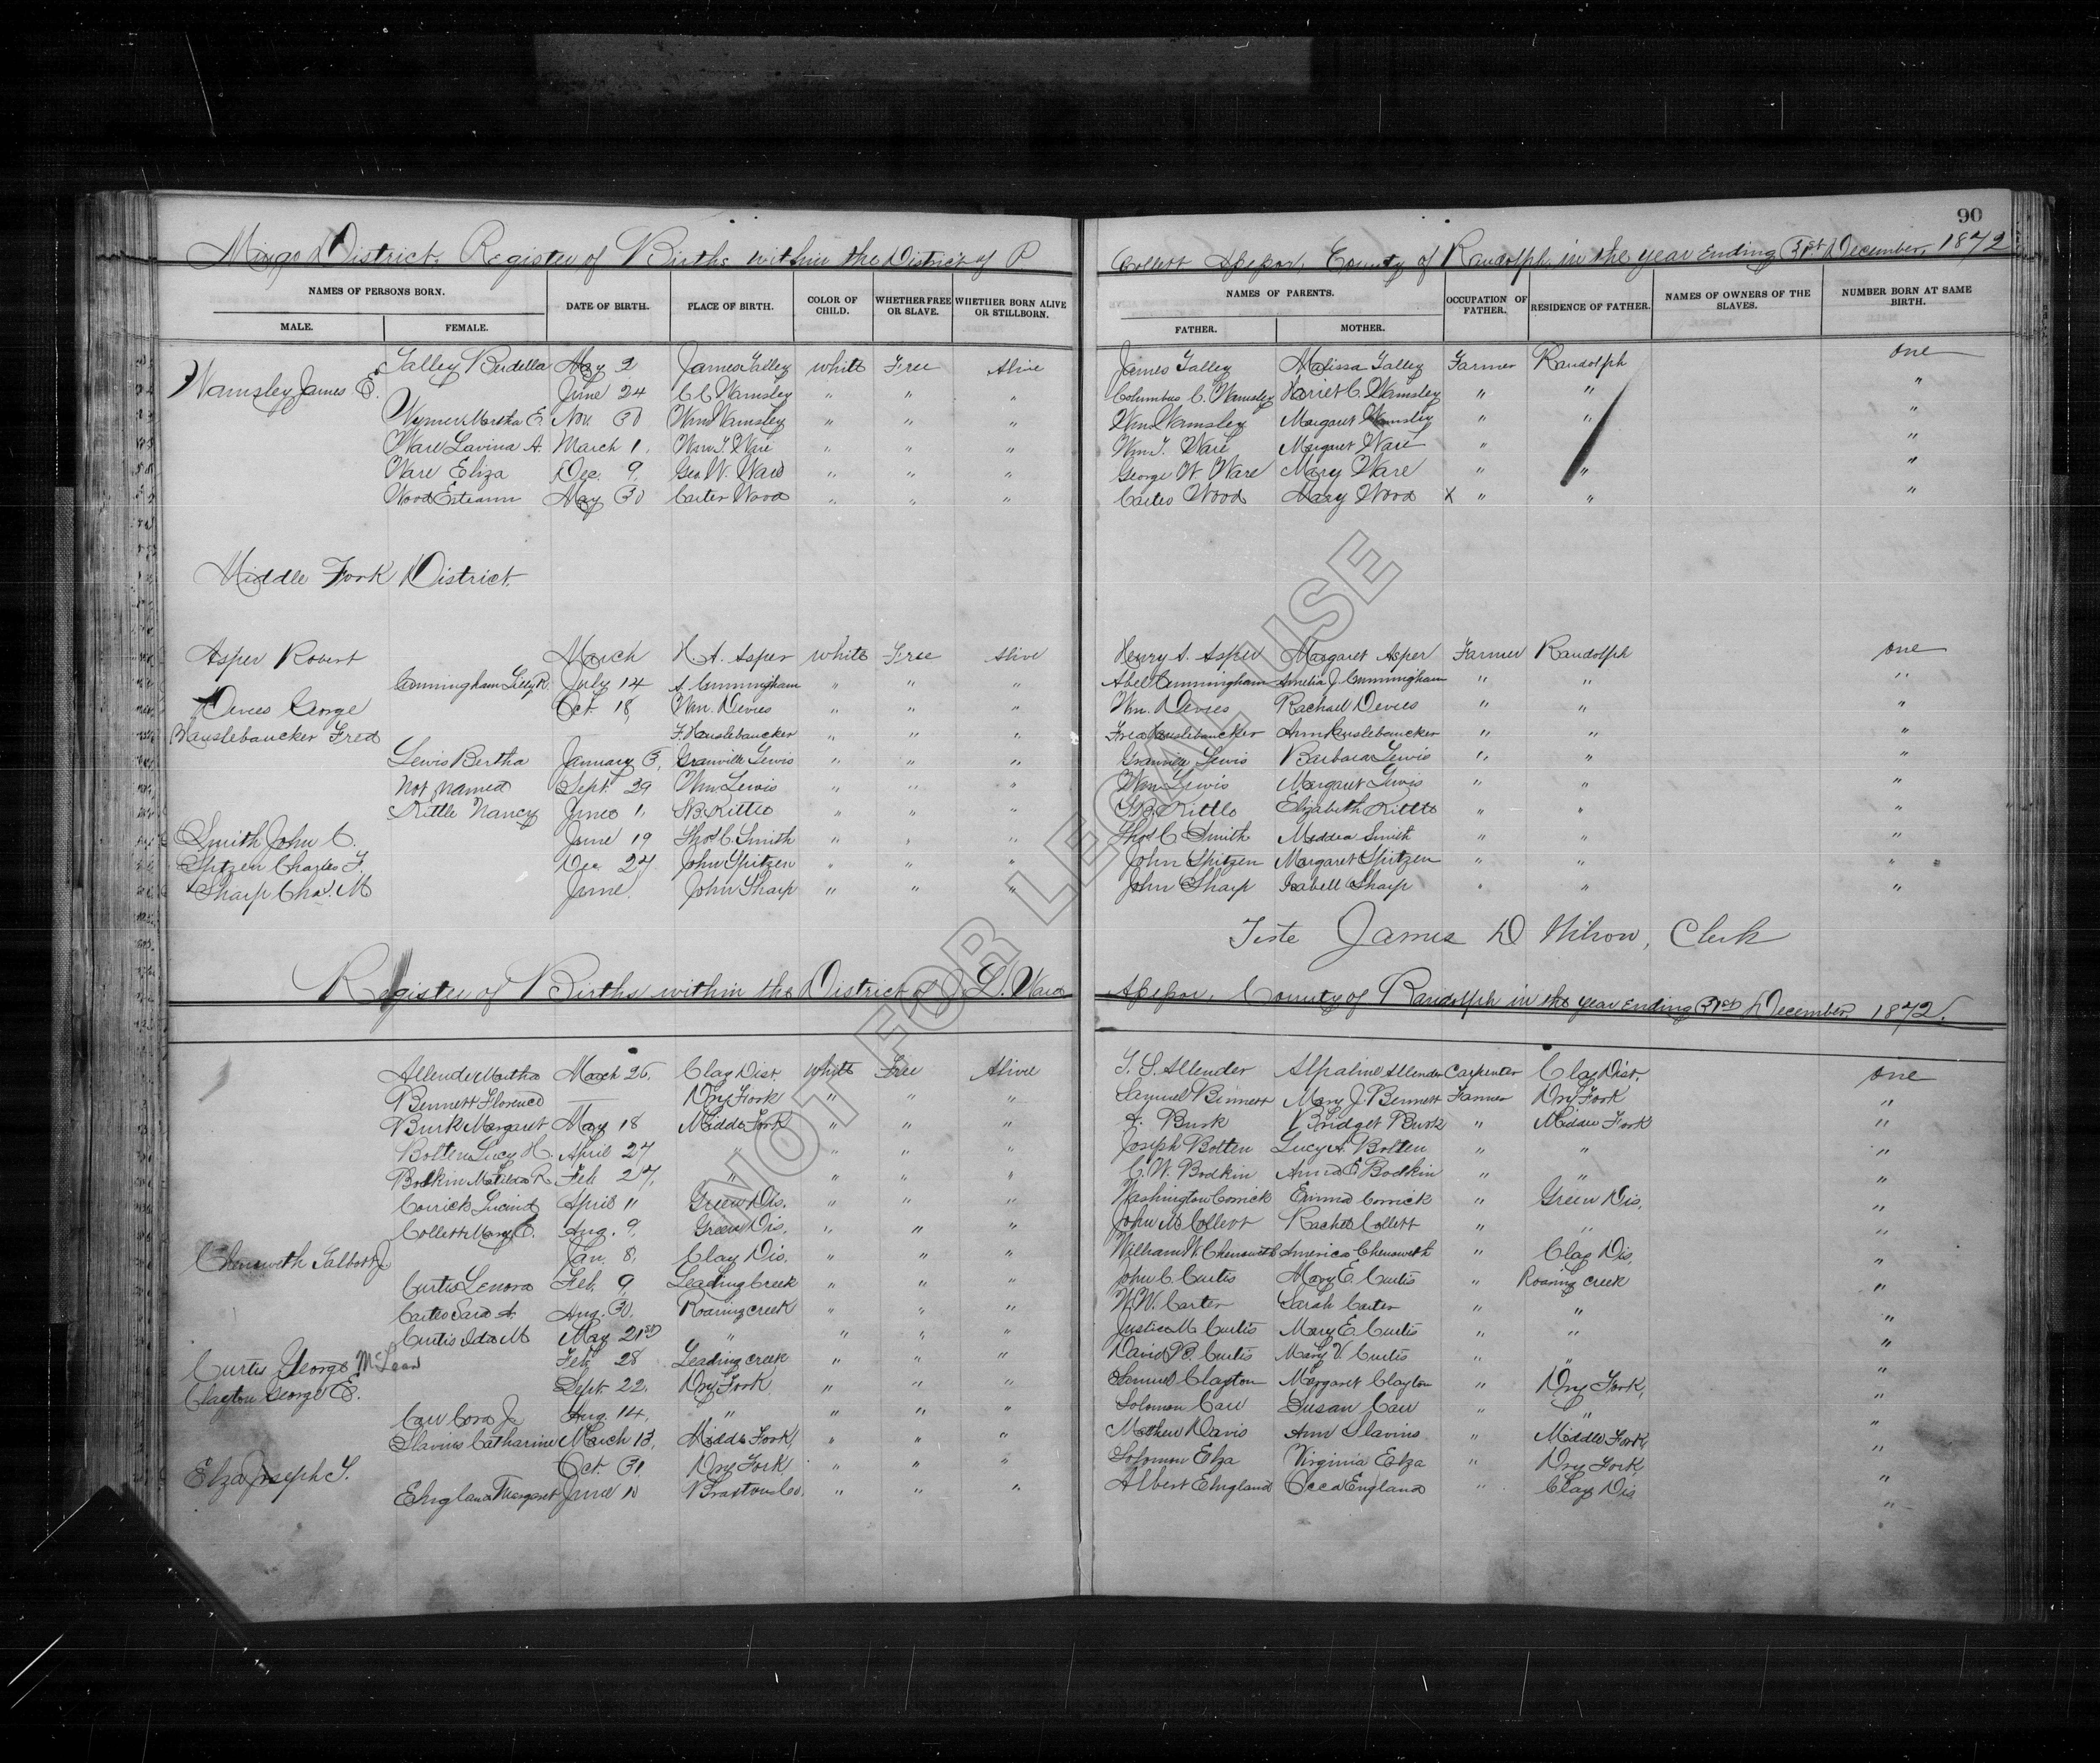 90
Mingo District. Register of Births within the District of P. Collett Assessor, County of Randolph in the year ending 31st December, 1872
NAMES OF PERSONS BORN. DATE OF BIRTH. PLACE OF BIRTH. COLOR OF CHILD. WHETHER FREE OR SLAVE. WHETHER BORN ALIVE OR STILLBORN. NAMES OF PARENTS. OCCUPATION OF FATHER. RESIDENCE OF FATHER. NAMES OF OWNERS OF THE SLAVES. NUMBER BORN AT SAME BIRTH.
MALE. FEMALE. FATHER. MOTHER.
Talley Burdella May 2 James Talley White Free Alive James Talley Malissa Talley Farmer Randolph one
Wamsley James E. June 24 C C Wamsley " " " Columbus C. Wamsley Harriet C. Wamsley " " "
Martha E. Nov 30 Wm Wamsley " " " Wm Wamsley Margaret Wamsley " " "
Ware Lavina A. March 1, Wm T. Ware " " " Wm T. Ware Margaret Ware " "
Ware Eliza Dec. 9, Geo. W. Ware " " " George W Ware Mary Ware " " "
Wood May 30 Carter Wood " " " Carter Wood Mary Wood X " " "
Middle Fork District
Asper Robert March H. A. Asper White Free Alive Henry A. Asper Margaret Asper Farmer Randolph one
Cunningham Lilly R. July 14 A. Cunningham " " " Abel Cunningham Amelia J. Cunningham " " "
Devies George Oct. 18, Wm. Devies " " " Wm. Devies Rachael Devies " " "
Hauslebaucker Fred F. Hauslebaucker " " " Fred Hauslebaucker Ann Hauslebaucker " " "
Lewis Bertha January 3, Granville Lewis " " " Granville Lewis Barbara Lewis " " "
Not Named Sept. 29 Wm. Lewis " " " Wm. Lewis Margaret Lewis " " "
Kittle Nancy June 1, B. Kittle " " " B. Kittle Elizabeth Kittle " " "
Smith John C. June 19 Thos C. Smith " " " Thos C Smith Smith " " "
Spitzen Charles F. Dec 27 John Spitzen " " " John Spitzen Margaret Spitzen " " "
Sharp Chas. M June. John Sharp " " " John Sharp Isabell Sharp " " "
Teste James D Wilson, Clerk
Register of Births within the District of J. L. Ward Assessor, County of Randolph in the year ending 31st December 1872.
Allender Martha March 26, Clay Dist. White Free Alive T. S. Allender Allender Carpenter Clay Dist. one
Bennett Florence Dry Fork " " " Samuel Bennett Mary J. Bennett Farmer Dry Fork "
Burk Margaret May 18 Middle Fork " " " Burk Bridget Burk " Middle Fork "
Bolten Lucy H. April 27 " " " " Joseph Bolten Lucy A. Bolten " " "
Bodkin Matilda R Feb 27, " " " " C. W. Bodkin Bodkin " " "
Corrick Lucind April 11 Green Dis. " " " Washington Corrick Emma Corrick " Green Dis. "
Collett Mary E. Aug. 9, Green Dis. " " " John M Collett Rachel Collett " " "
Chenoweth Talbott J. Jan. 8, Clay Dis. " " " William W. Chenoweth America Chenoweth " Clay Dis. "
Curtis Lenora Feb. 9, Leading Creek " " " John C. Curtis Mary E. Curtis " Roaring Creek "
Carter A. Aug. 30, Roaring creek " " " W. W. Carter Sarah Carter " " "
Curtis Ida M May 21st " " " " Justice M Curtis Mary E Curtis " " "
Curtis George McLean Feb. 28 Leading creek " " " David B. Curtis Mary V. Curtis " " "
Clayton George E. Sept. 22. Dry Fork " " " Samuel Clayton Margaret Clayton " Dry Fork, "
Carr Cora J. Aug. 14, " " " " Solomon Carr Susan Carr " " "
Slavins Catharine March 13, Middle Fork, " " " Mathew Davis Ann Slavins " Middle Fork "
Elza Joseph T. Oct. 31, Dry Fork " " " Solomon Elza Virginia Elza " Dry Fork "
England Margaret June 10 Braxton Co. " " " Albert England England " Clay Dis "
NOT FOR LEGAL USE